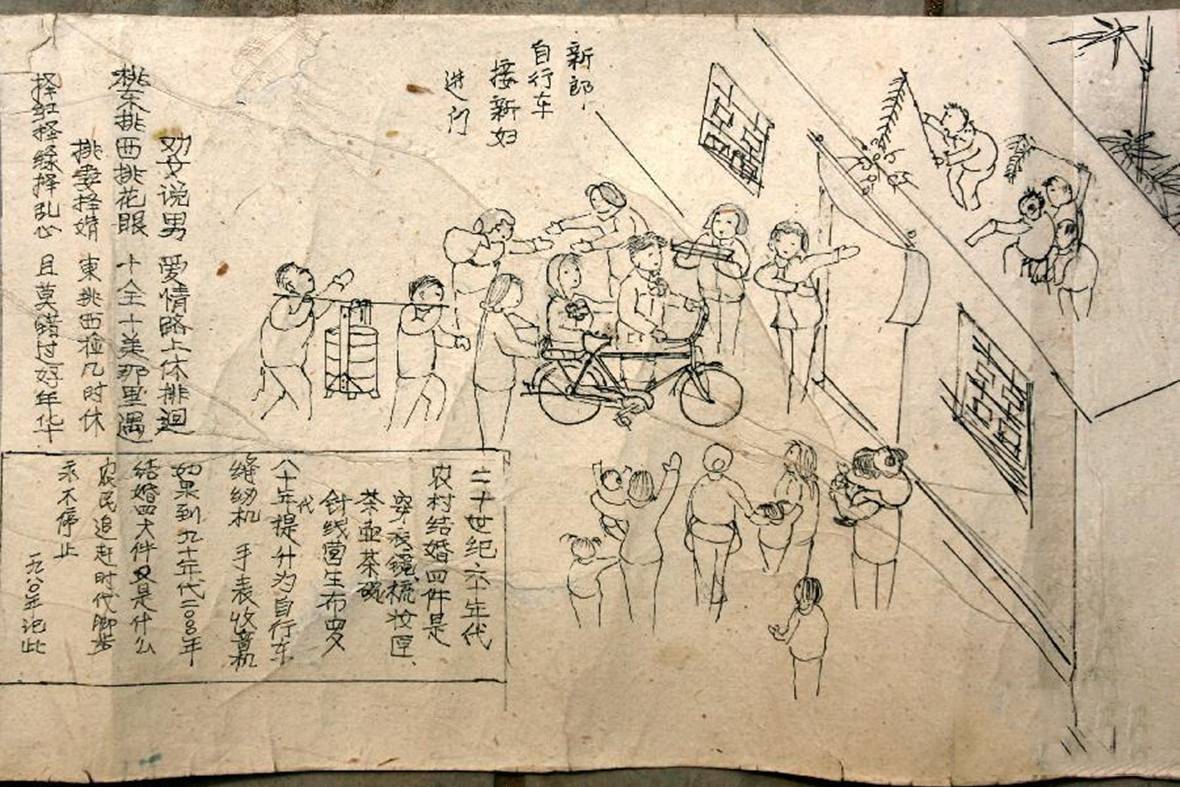 新郎
自行车
接新妇
进门
劝女说男 爱情路上休排迴
挑东挑西挑花眼 十全十美那里遇
挑妻择婿 東挑西捡几时休
择红择绿择乱心 且莫错过好年华
二十世纪六十年代
农村结婚四件是
穿衣镜梳妆匣
茶壶茶碗
针线营生布
八十年代提升为自行车
缝纫机 手表收音机
如果到九十年代二000年
结婚四大件又是什么
农民追赶时代脚步
永不停止
一九八0年记此